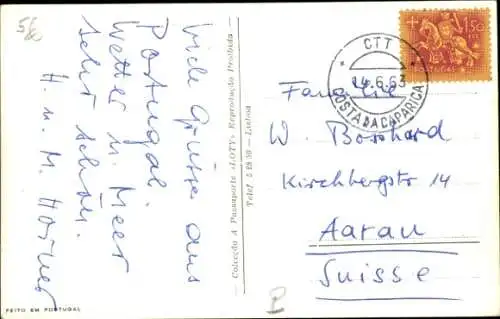 5€
Viele Grüsse aus
Portugal.
Wetter u. Meer
sehr schön.
H. u. M. Horner
FEITO EM PORTUGAL
Colecção A Passaporte «LOTY», Reprodução Proibida
Telef. Lisboa
CTT
14.6.63
COSTA DA CAPARICA
1$50
PORTUGAL
Familie
W. Bosshard
Kirchbergstr 14
Aarau
Suisse